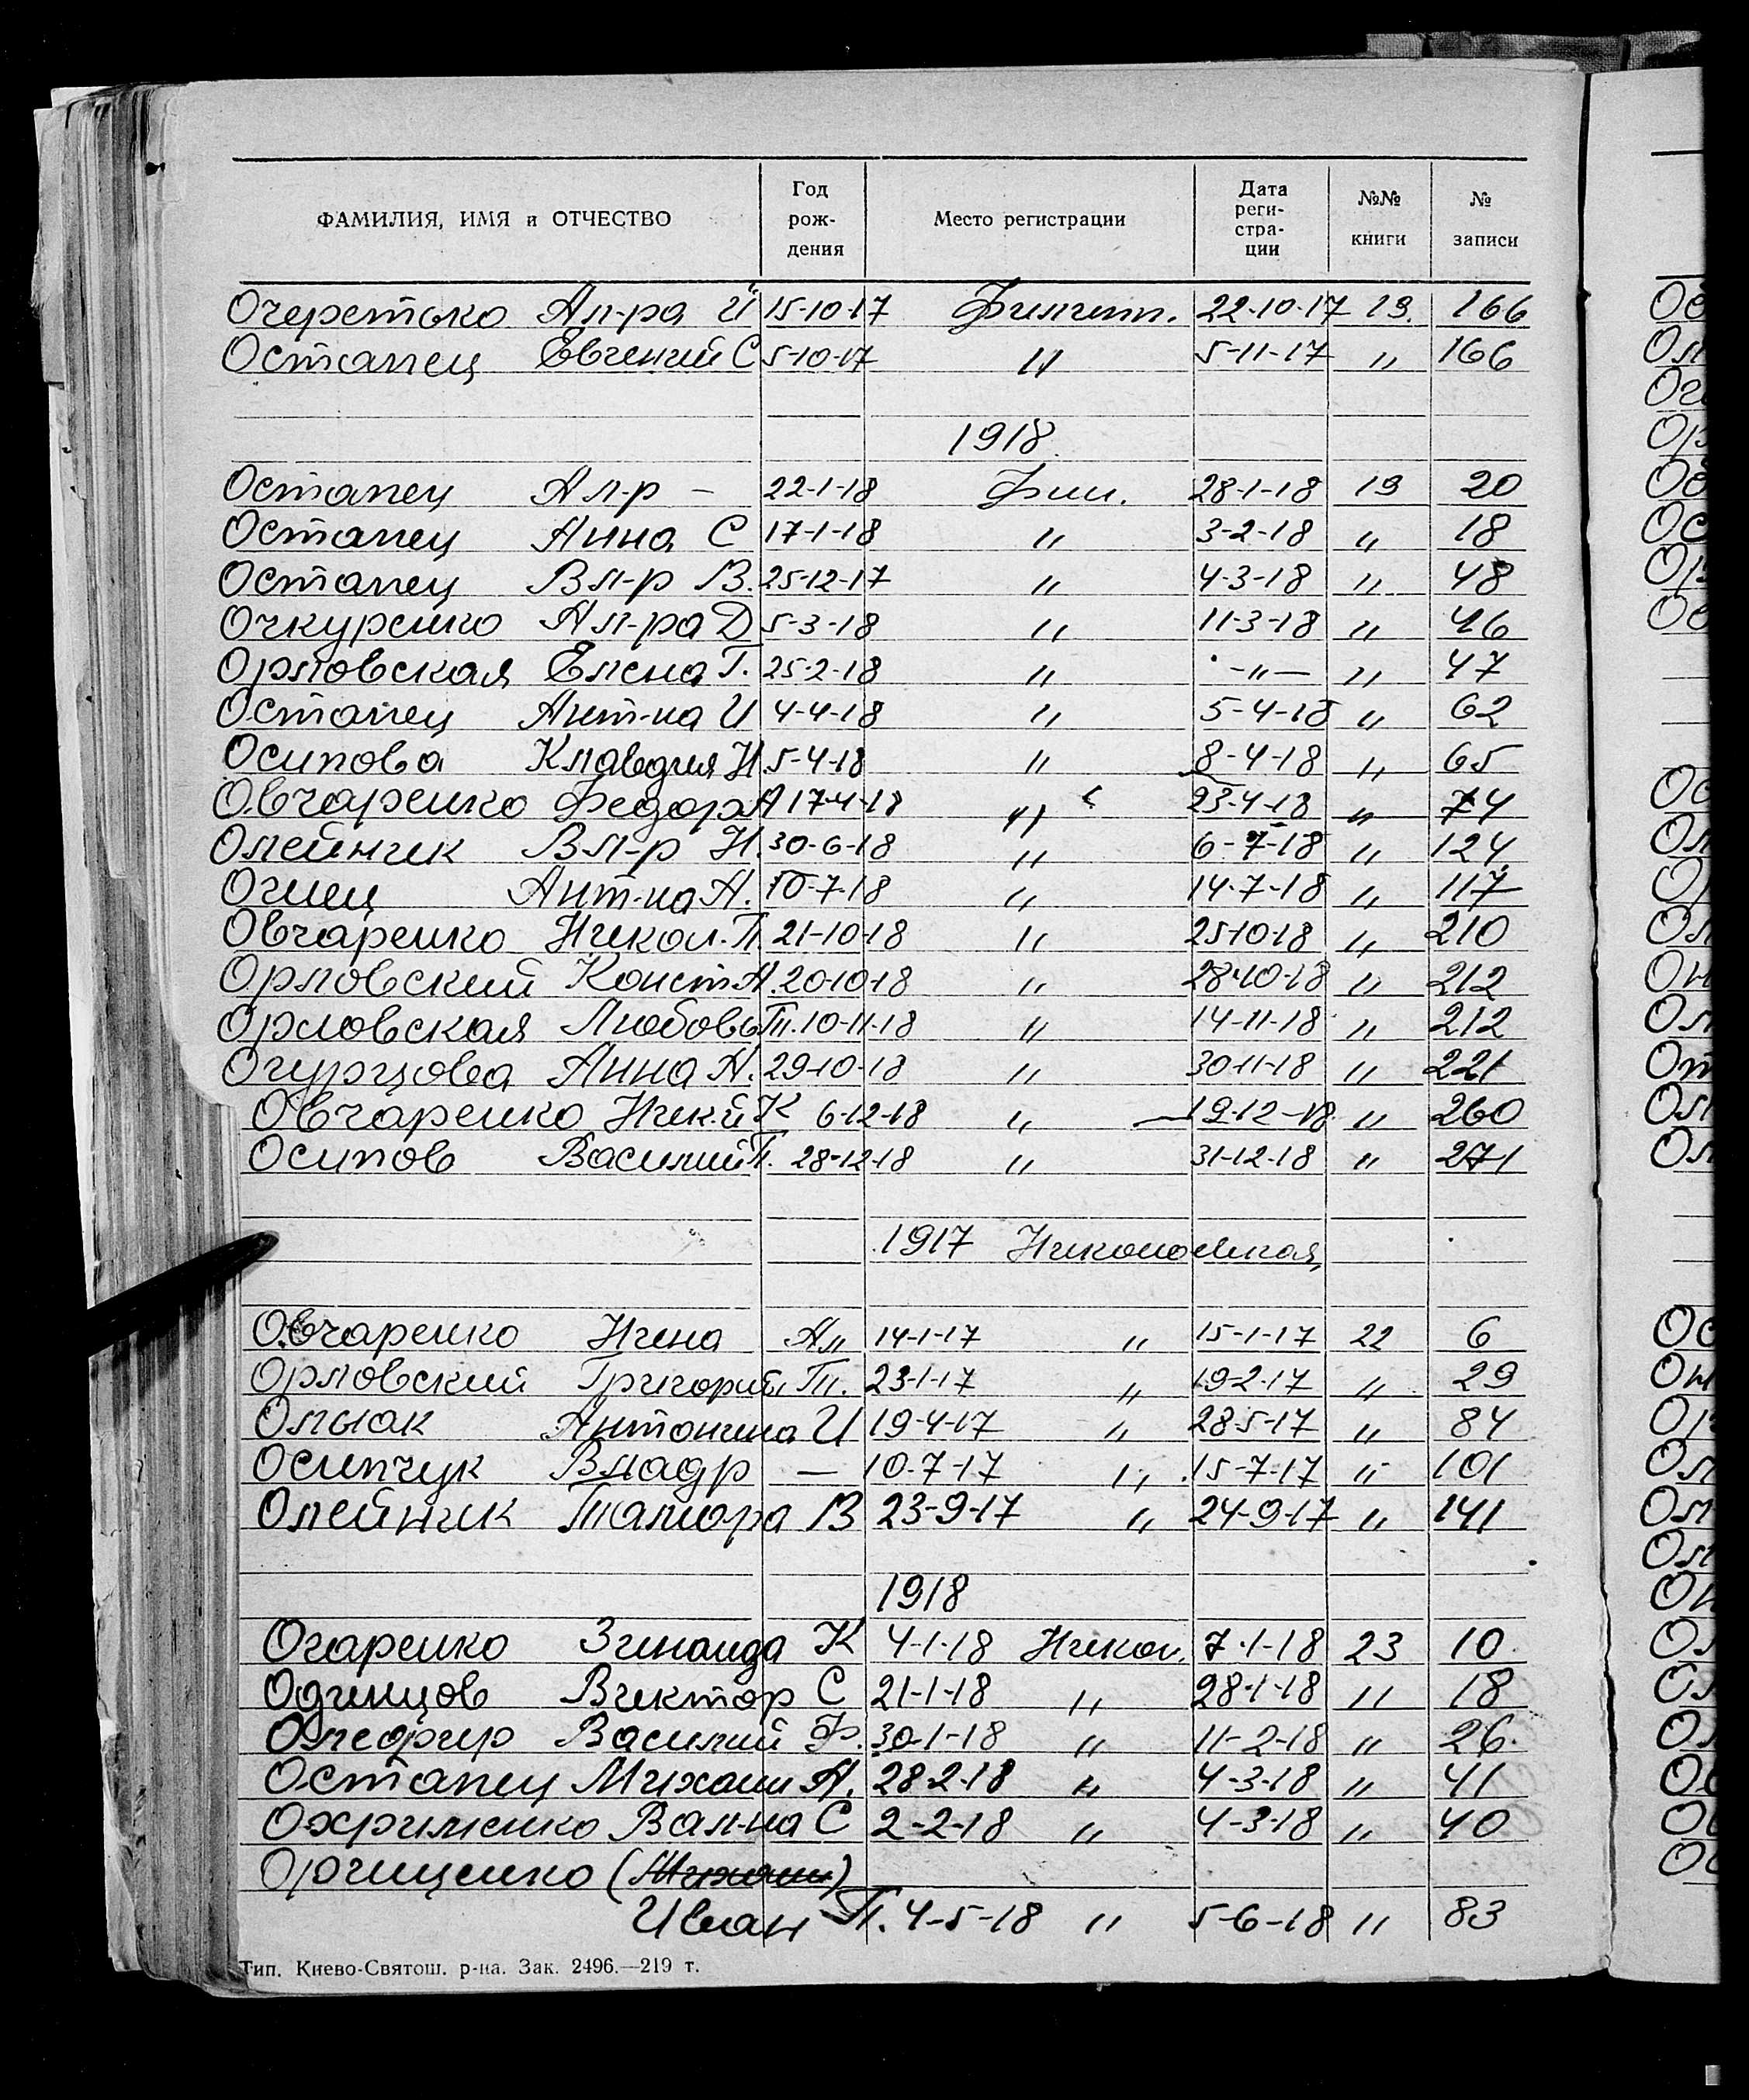 ФАМИЛИЯ, ИМЯ и ОТЧЕСТВО Год рождения Место регистрации Дата регистрации №№ книги № записи
Очеретько Ал-ра И 15-10-17 22-10-17 19. 166
Остапец Евгений С 5-10-17 " 5-11-17 " 166
1918
Остапец Ал-р – 22-1-18 Фил. 28-1-18 19 20
Остапец Анна С 17-1-18 " 3-2-18 " 18
Остапец Вл-р В. 25-12-17 " 4-3-18 " 48
Очкуренко Ал-ра Д 5-3-18 " 11-3-18 " 46
Орловская Елена Г. 25-2-18 " -"- " 47
Остапец Ант-на И 4-4-18 " 5-4-18 " 62
Осипова Клавдия Н. 5-4-18 " 8-4-18 " 65
Овчаренко Федор А 17-4-18 " 23-4-18 " 74
Олейник Вл-р Н. 30-6-18 " 6-7-18 " 124
Ант-на А. 10-7-18 " 14-7-18 " 117
Овчаренко Никол. П. 21-10-18 " 25-10-18 " 210
Орловский Конст А. 20-10-18 " 28-10-18 " 212
Орловская Любовь 10-11-18 " 14-11-18 " 212
Огурцова Анна А. 29-10-18 " 30-11-18 " 221
Овчаренко Ник-й К 6-12-18 " 19-12-18 " 260
Осипов Василий П. 28-12-18 " 31-12-18 " 271
1917
Овчаренко Нина Ал 14-1-17 " 15-1-17 22 6
Орловский Григорий 23-1-17 " 19-2-17 " 29
Антонина И 19-4-17 " 28-5-17 " 84
Осипчук Владр — 10-7-17 " 15-7-17 " 101
Олейник Тамара В 23-9-17 " 24-9-17 " 141
1918
Огаренко Зинаида К 4-1-18 Никол. 7-1-18 23 10
Одинцов Виктор С 21-1-18 " 28-1-18 " 18
Олефир Василий Ф. 30-1-18 " 11-2-18 " 26.
Остапец Михаил А. 28-2-18 " 4-3-18 " 41
Охрименко Вал-на С 2-2-18 " 4-3-18 " 40
Орчищенко (Михаил)
Иван П. 4-5-18 " 5-6-18 " 83
Тип. Киево-Святош. р-на. Зак. 2496.—219 т.